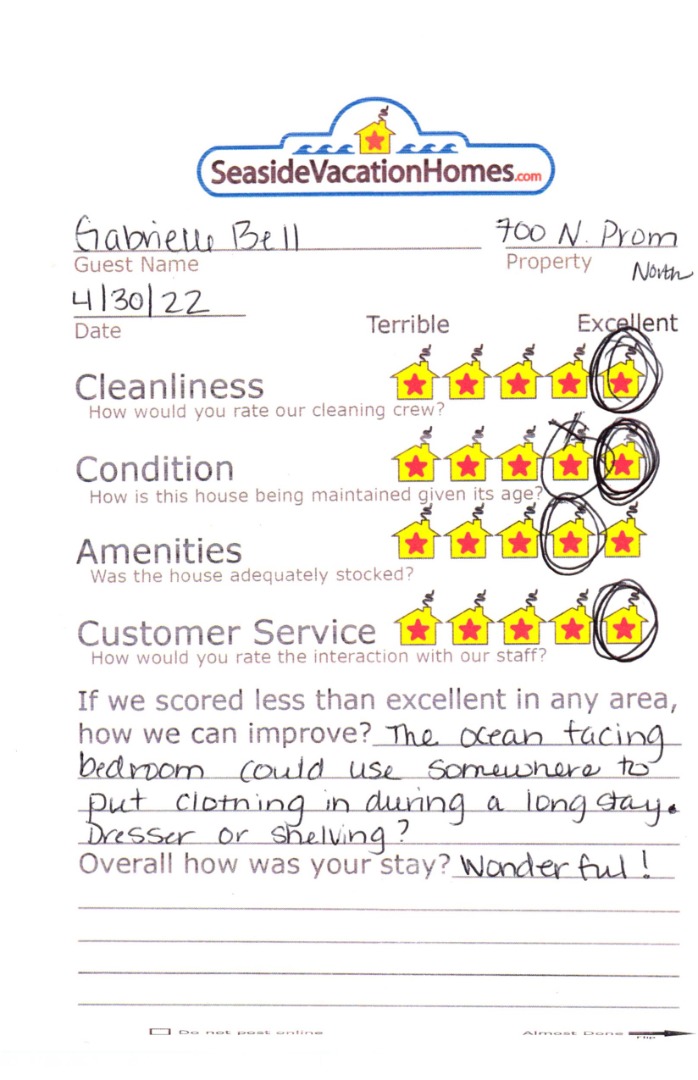 SeasideVacationHomes.com
Gabrielle Bell 700 N. Prom
Guest Name Property North
4/30/22
Date Terrible Excellent
Cleanliness
How would you rate our cleaning crew?
Condition
How is this house being maintained given its age?
Amenities
Was the house adequately stocked?
Customer Service
How would you rate the interaction with our staff?
If we scored less than excellent in any area,
how we can improve? The ocean facing
bedroom could use somewhere to
put clothing in during a long stay.
Dresser or shelving?
Overall how was your stay? Wonderful!
Do not post online Almost Done
Flip